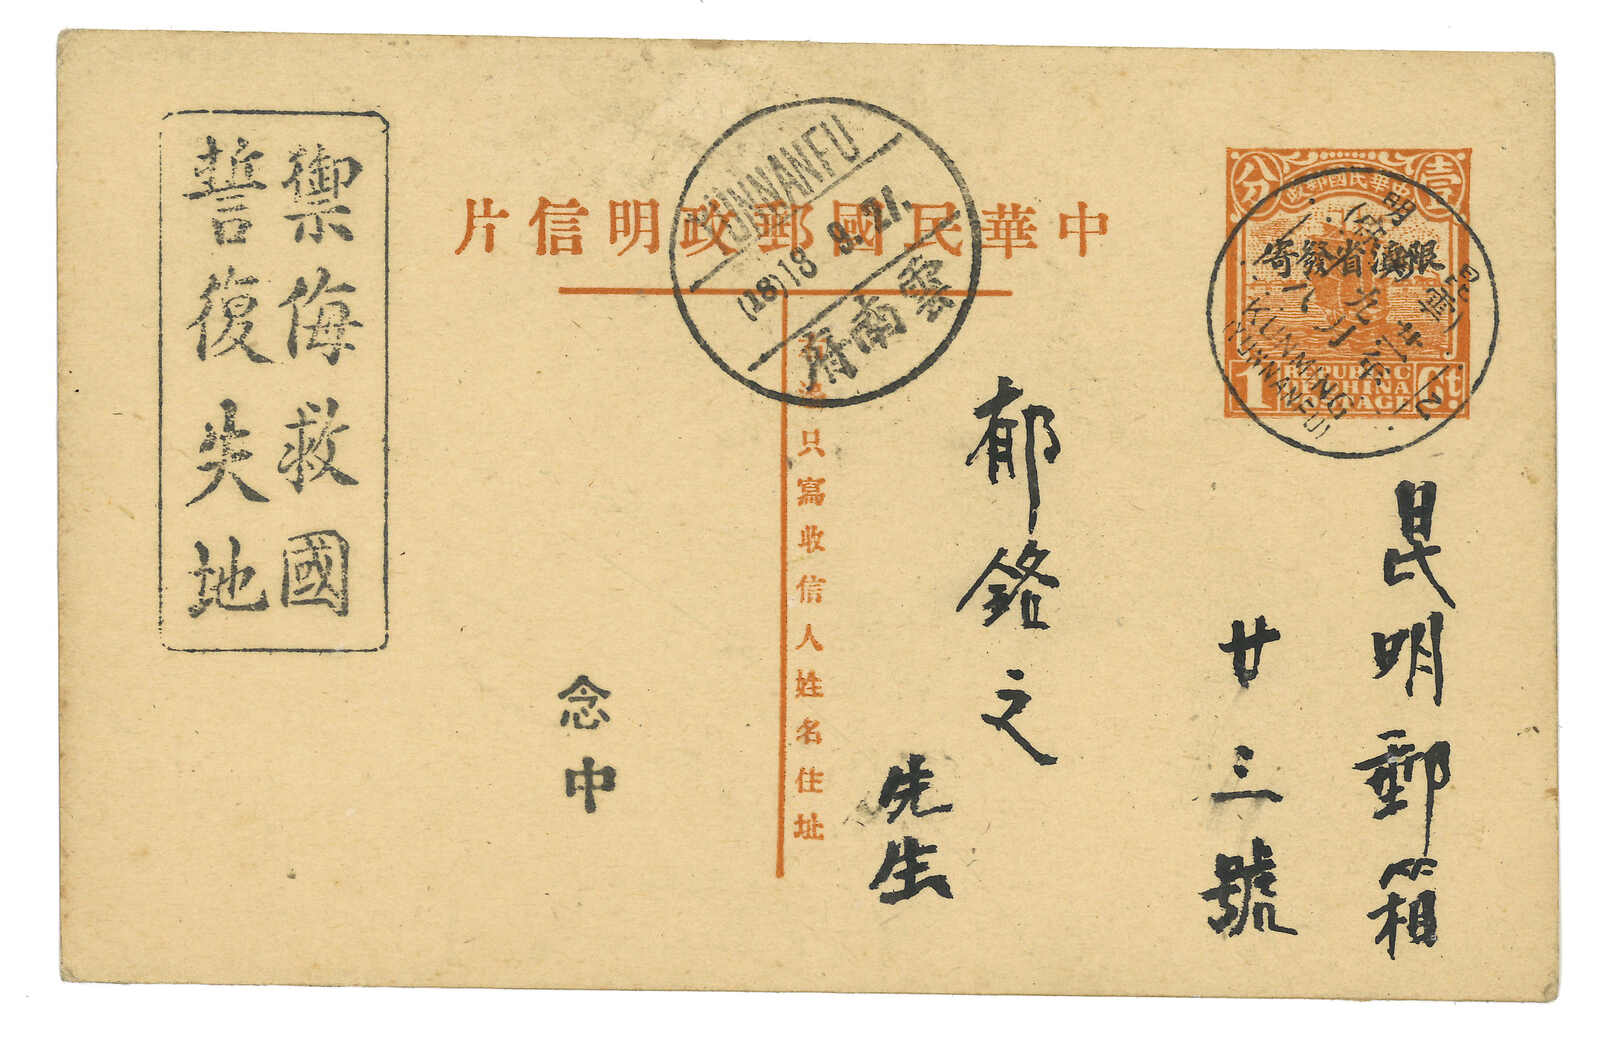 中華民國郵政明信片
中華民國郵政
壹分
限滇省發寄
REPUBLIC
OF CHINA
POSTAGE
1 Ct.
昆明
KUNMING
(YUNNANFU)
YUNNANFU
(18)18 9.21.
雲南府
昆明郵箱
廿三號
郁銘之
先生
右邊只寫收信人姓名住址
念中
禦侮救國
誓復失地